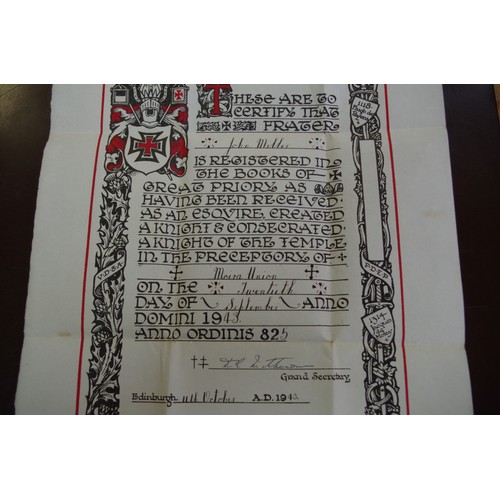 THESE ARE TO
CERTIFY THAT
FRATER
John
IS REGISTERED IN
THE BOOKS OF
GREAT PRIORY AS
HAVING BEEN RECEIVED
AS AN ESQVIRE, CREATED
A KNIGHT & CONSECRATED
A KNIGHT OF THE TEMPLE
IN THE PRECEPTORY OF
Moira Union
ON THE Twentieth
DAY OF September ANNO
DOMINI 1943
ANNO ORDINIS 825
Grand Secretary
Edinburgh 11th October A.D. 1943
1118
V.D.S.A.
P.D.E.P.
1314